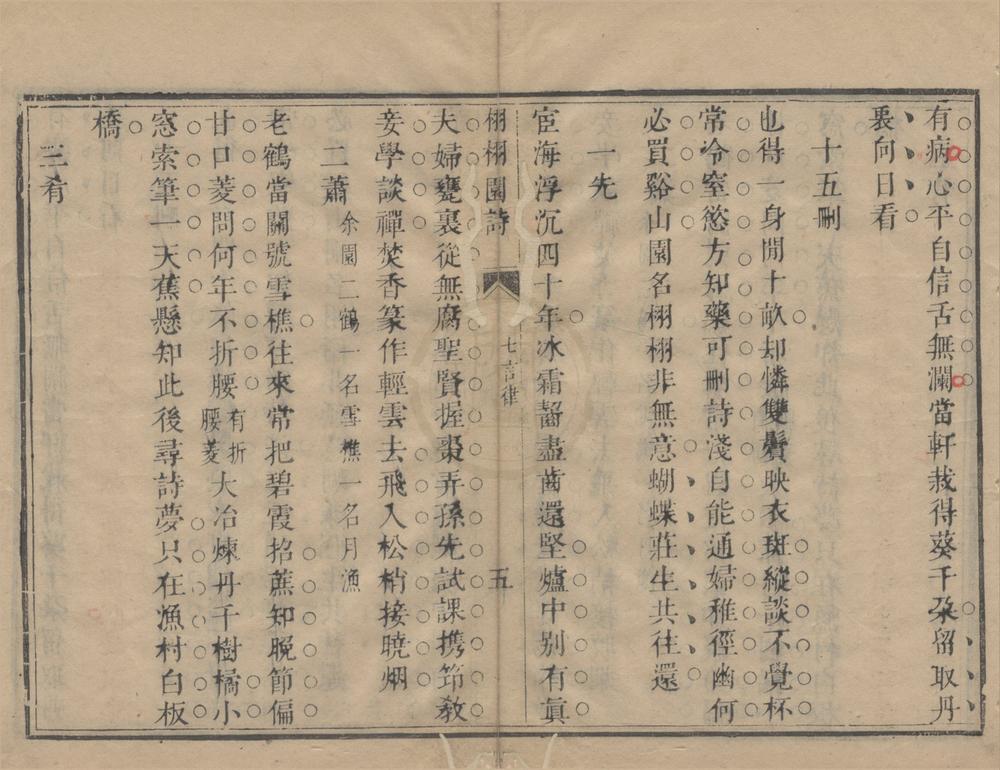 有病心平自信舌無瀾當軒栽得葵千朶留取丹
裏向日看
十五刪
也得一身閒十畝却憐雙鬢映衣斑縱談不覺杯
常冷窒慾方知藥可刪詩淺自能通婦稚徑幽何
必買谿山園名栩栩非無意蝴蝶莊生共往還
一先
宦海浮沉四十年冰霜齧盡齒還堅爐中别有眞
栩栩園詩 七言律 五
夫婦甕裏從無腐聖賢握棗弄孫先試課携筇教
妾學談禪焚香篆作輕雲去飛入松梢接曉烟
二蕭 余園二鶴一名雪樵一名月漁
老鶴當關號雪樵往來常把碧霞招蔗知晚節偏
甘口菱問何年不折腰 有折腰菱 大冶煉丹千樹橘小
窓索筆一天蕉懸知此後尋詩夢只在漁村白板
橋
三肴